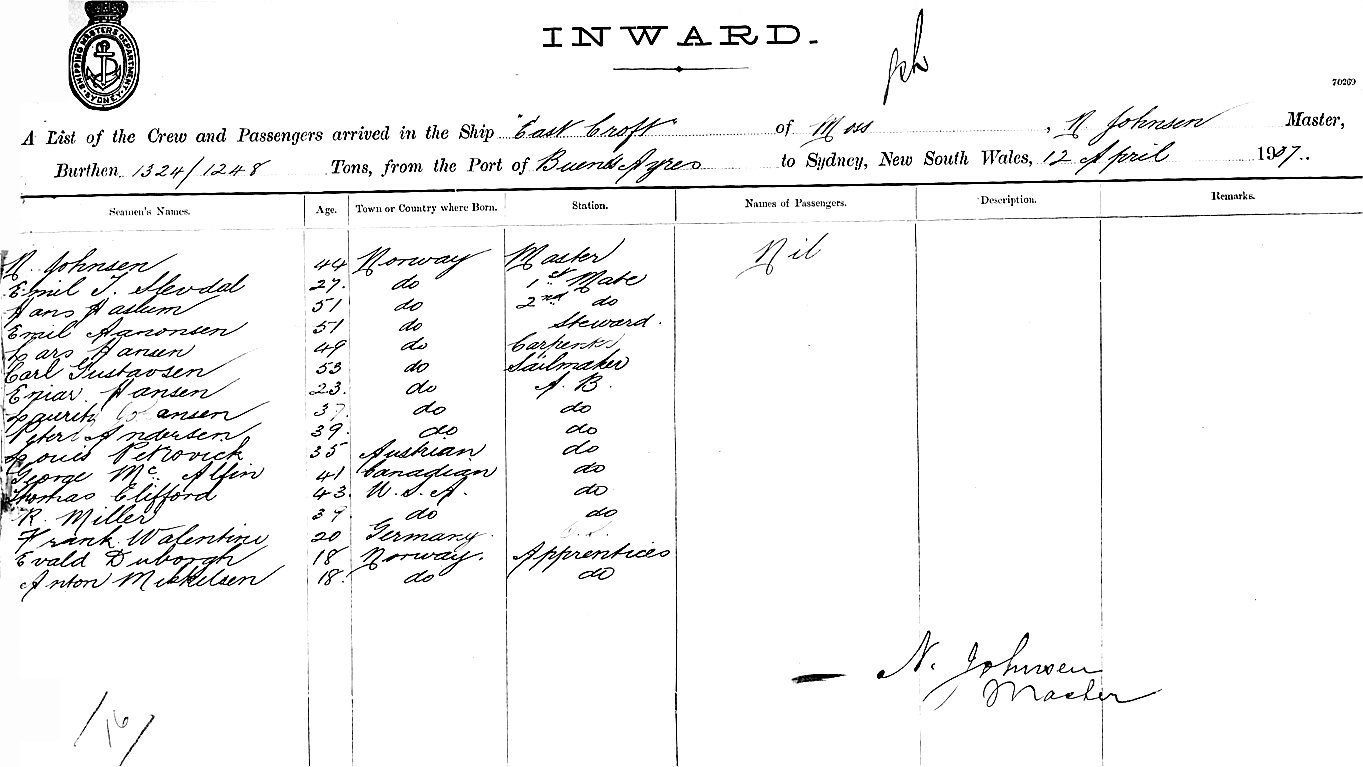 SHIPPING MASTERS DEPARTMENT SYDNEY
INWARD.
70269
A List of the Crew and Passengers arrived in the Ship "East Croft" of Moss, N Johnsen Master,
Burthen 1324/1248 Tons, from the Port of Buenos Ayres to Sydney, New South Wales, 12 April 1907.
Seamen's Names. Age. Town or Country where Born. Station. Names of Passengers. Description. Remarks.
N. Johnsen 44 Norway Master Nil
Emil T. 27. do 1st Mate
Hans Haslum 51 do 2nd do
Emil Aanonsen 51 do Steward.
Lars Hansen 49 do Carpenter
Carl Gustavsen 53 do Sailmaker
Eniar Hansen 23. do A. B.
Lauritz Hansen 37. do do
Peter Andersen 39. do do
Louis Petrovick 35 Austrian do
George Mc. Alfin 41 Canadian do
Thomas Clifford 43. U. S. A. do
R. Miller 39 do do
Frank Walentini 20 Germany.
Evald Duborgh 18 Norway. Apprentices
Anton Mikkelsen 18. do do
N. Johnsen
Master
/16/